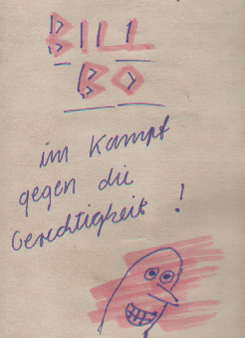 BILL
BO
im Kampf
gegen die
Gerechtigkeit !